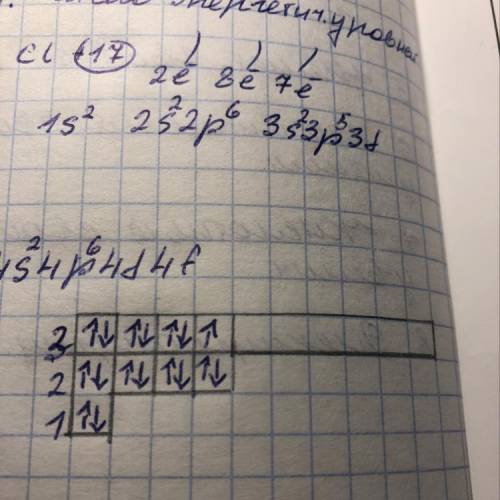 энергетич. уровней
Cl +17 2ē 8ē 7ē
1s² 2s²2p⁶ 3s²3p⁵3d
4s²4p⁶4d4f
3 ↑↓ ↑↓ ↑↓ ↑
2 ↑↓ ↑↓ ↑↓ ↑↓
1 ↑↓